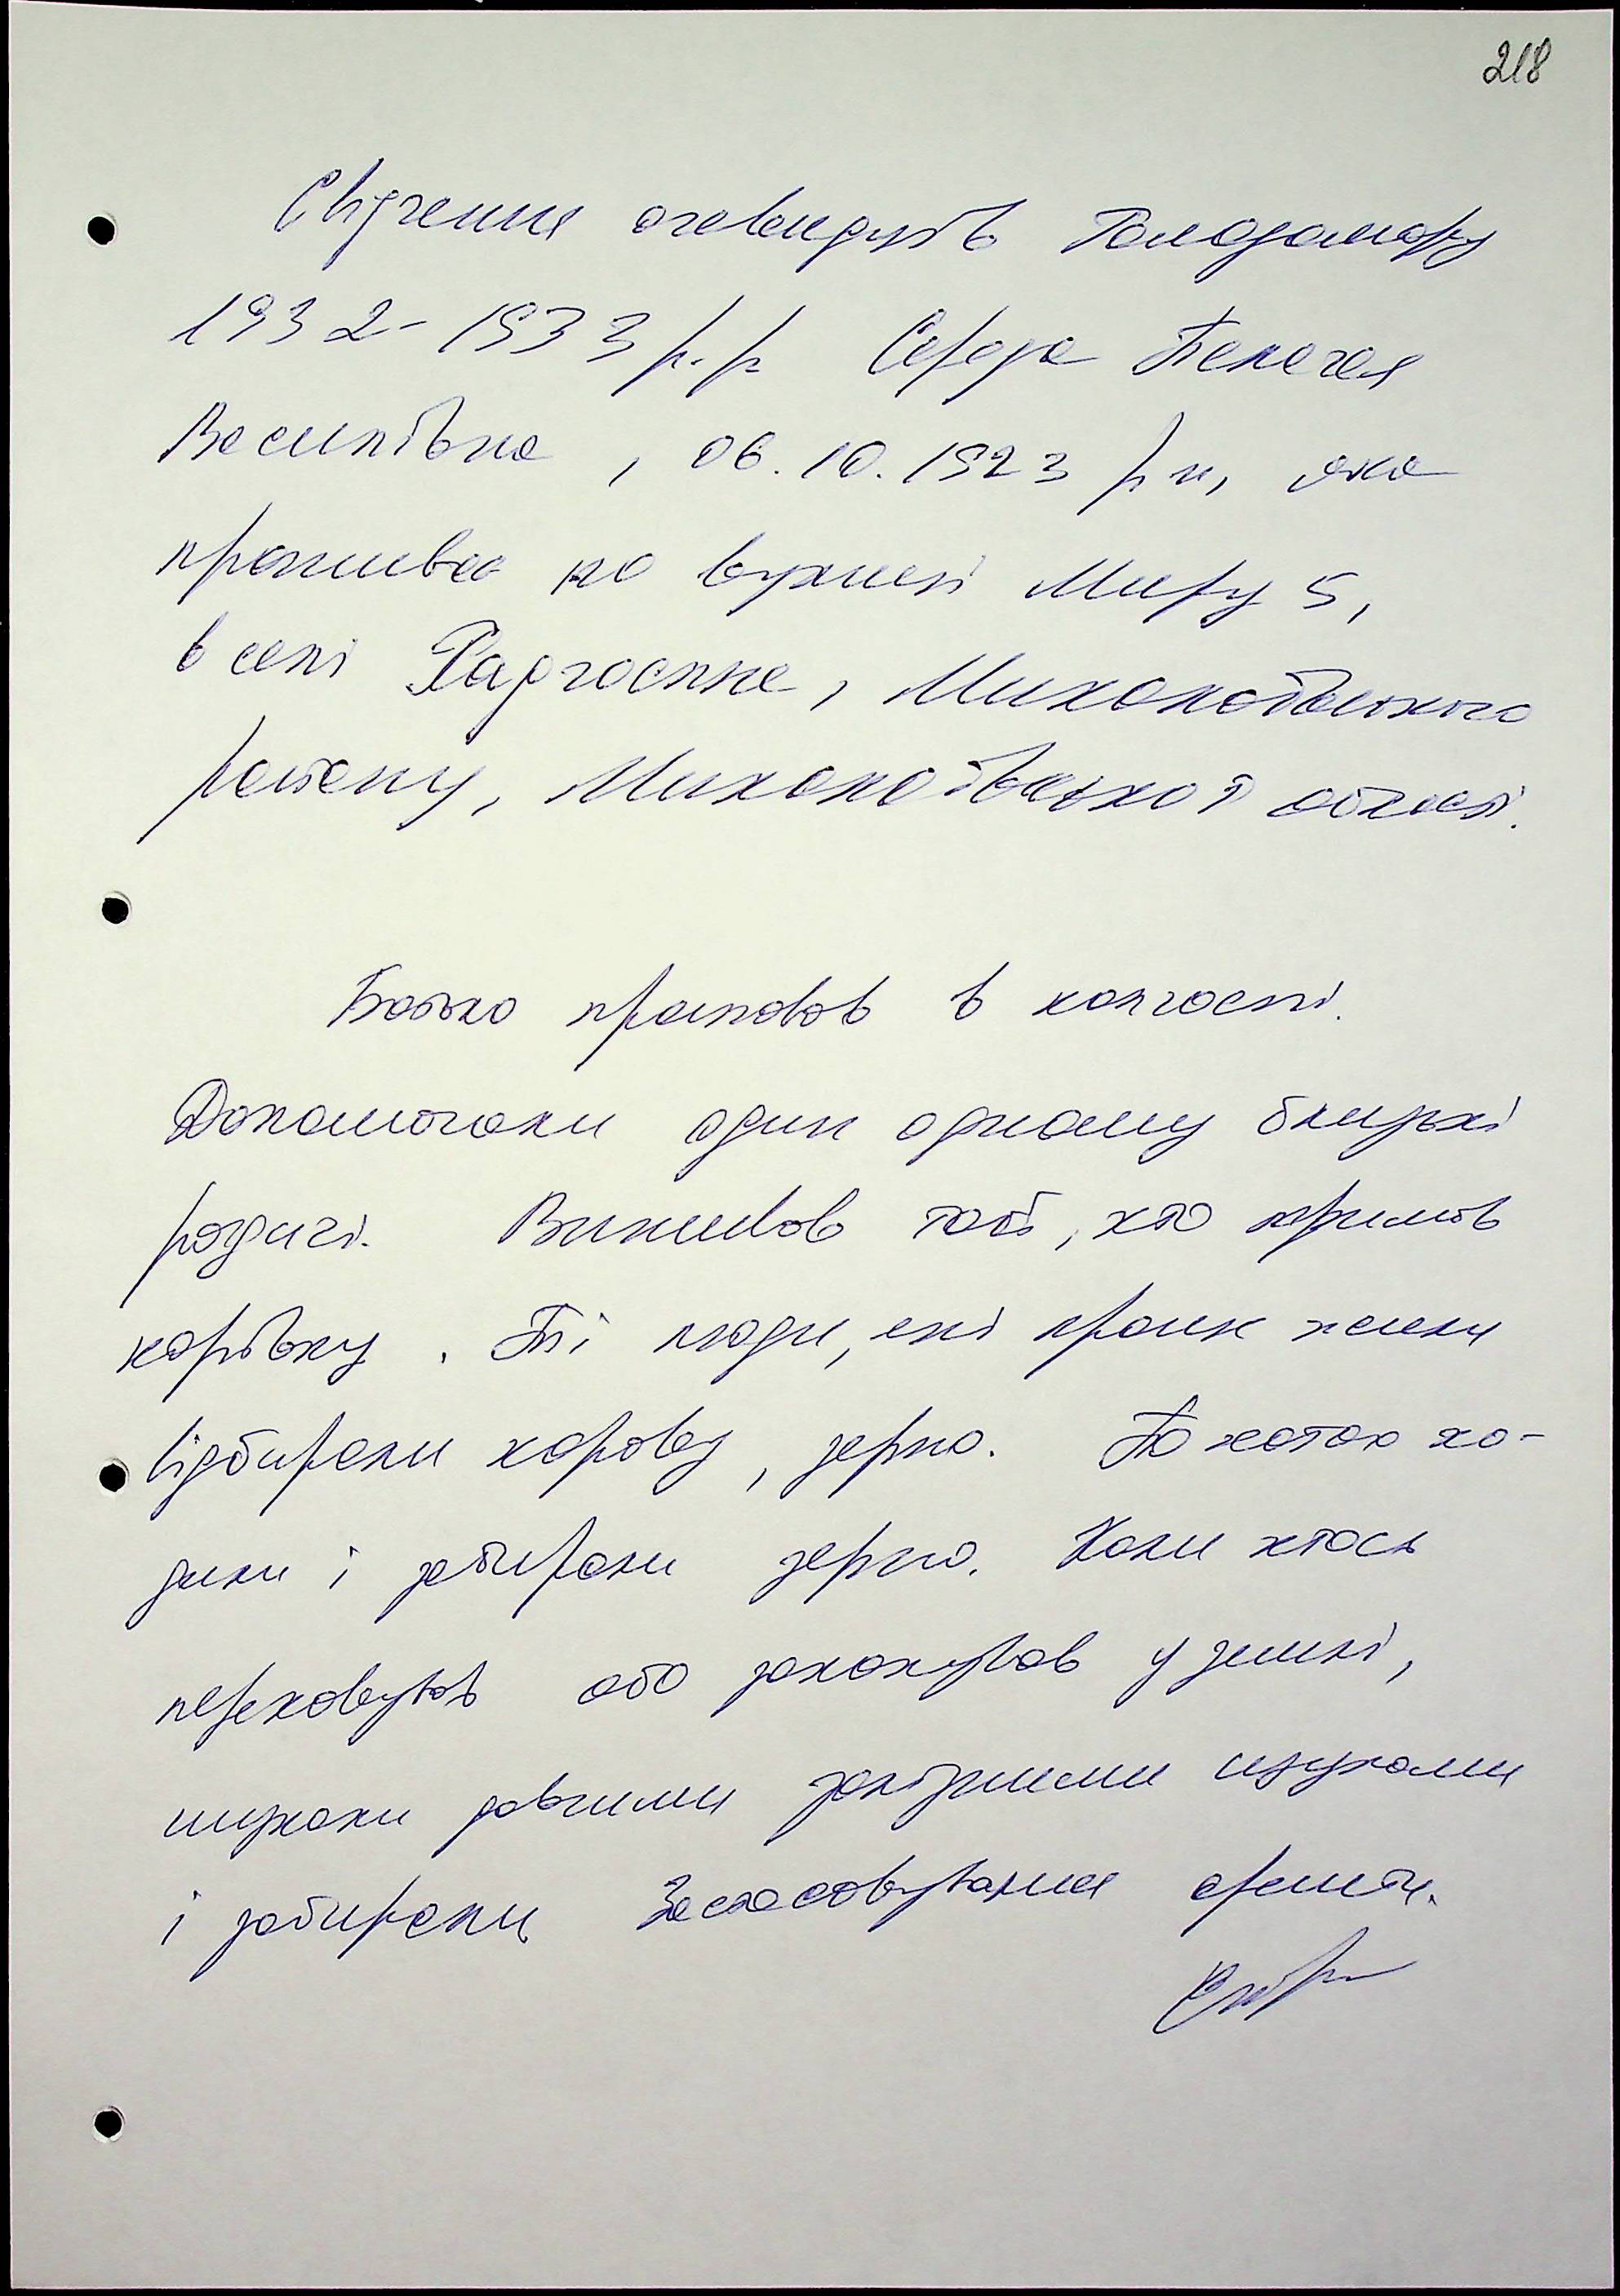 218
Свідчення очевидців Голодомору
1932-1933 р.р Середа Пелагея
Василівна, 06.10.1923 р н, яка
проживає по вулиці Миру 5,
в селі Радгоспне, Миколаївського
району, Миколаївської області.
Батько працював в колгоспі.
Допомогали один одному близькі
родичі. Виживав той, хто тримав
корівку. Ті люди, які краще жили
відбирали корову, зерно. По хатах хо-
дили і забирали зерно. Коли хтось
переховував або закопував у землі,
шукали довгими залізними щупами
і забирали. Застосовували арешти.